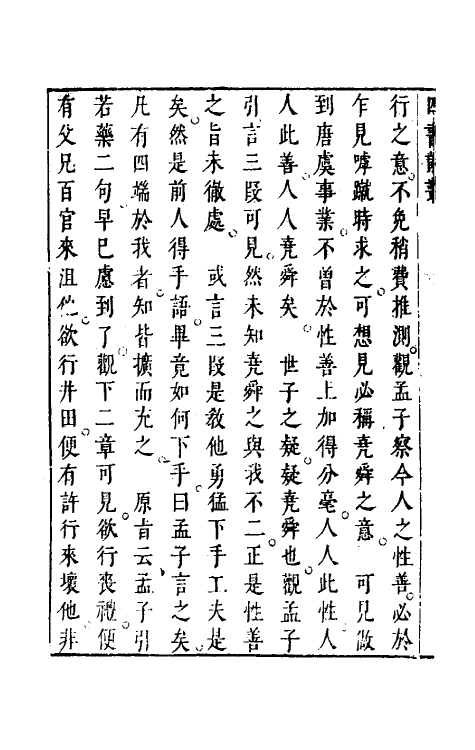 行之意不免稍費推測觀孟子察今人之性善必於
乍見嘑蹴時求之可想見必稱堯舜之意　可見做
到唐虞事業不曾於性善上加得分毫人人此性人
人此善人人堯舜矣　世子之疑疑堯舜也觀孟子
引言三段可見然未知堯舜之與我不二正是性善
之旨未徹處　或言三段是教他勇猛下手工夫是
矣然是前人得手語畢竟如何下手曰孟子言之矣
凡有四端於我者知皆擴而充之　原旨云孟子引
若藥二句早已慮到了觀下二章可見欲行喪禮便
有父兄百官來沮他欲行井田便有許行來壞他非